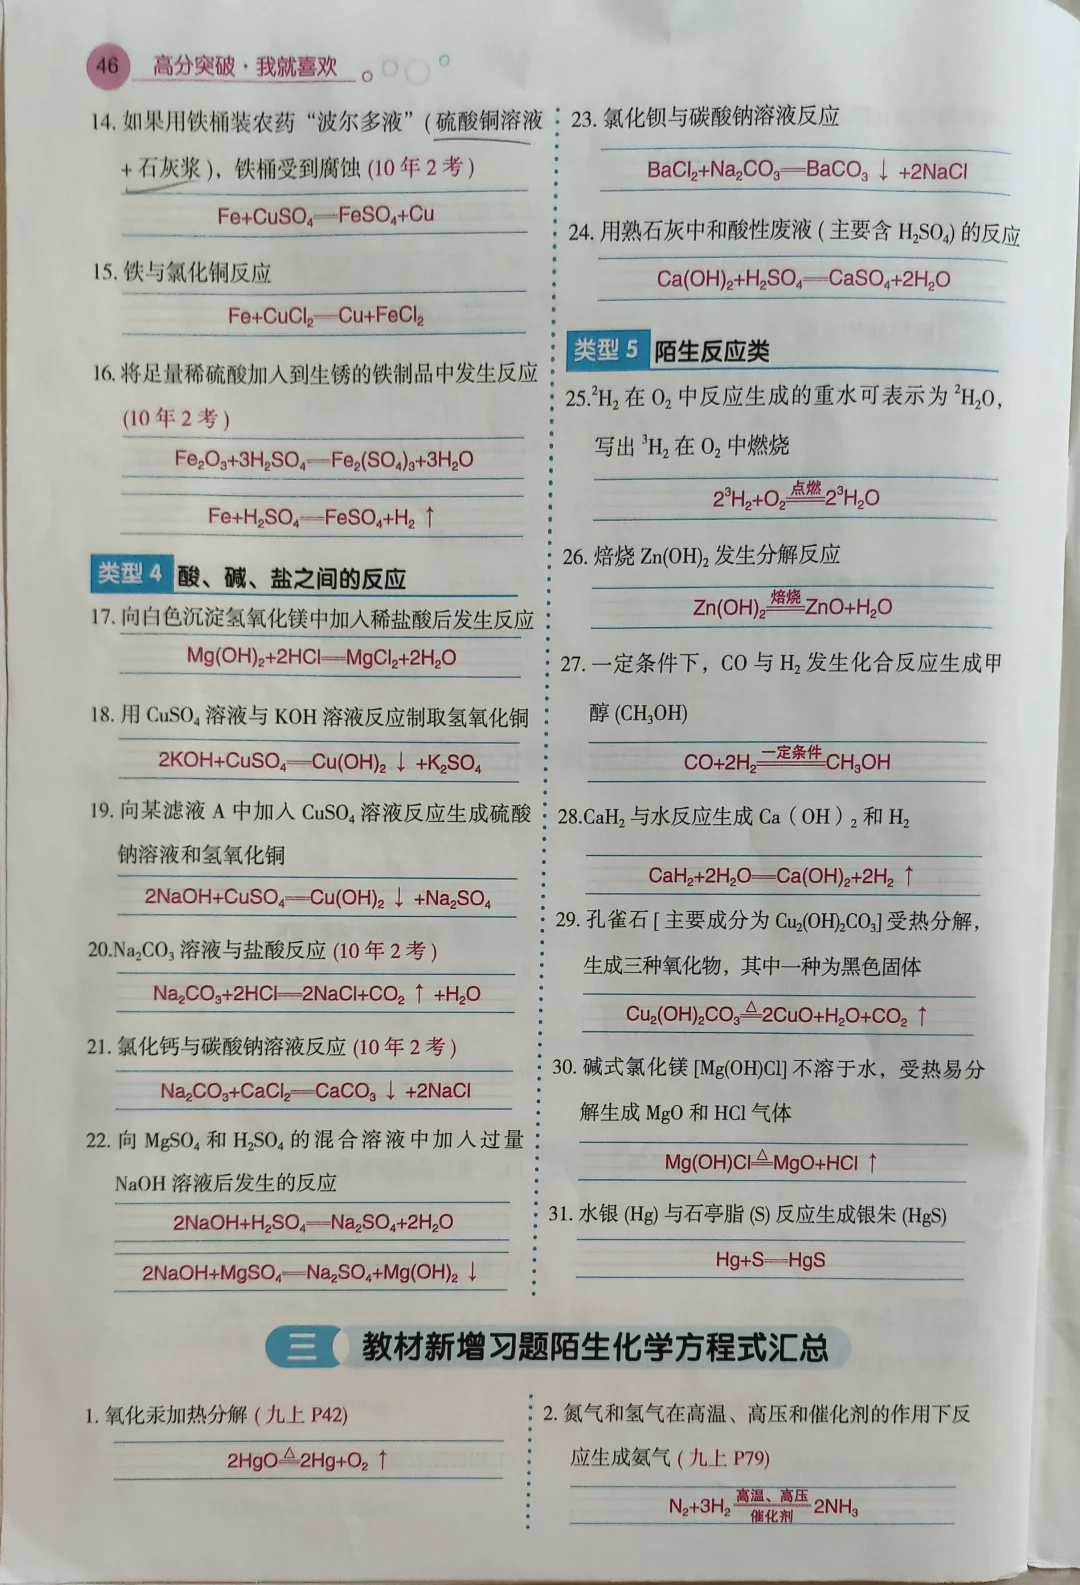 46 高分突破·我就喜欢
14. 如果用铁桶装农药“波尔多液”(硫酸铜溶液
+石灰浆),铁桶受到腐蚀(10年2考)
Fe+CuSO₄═FeSO₄+Cu
15. 铁与氯化铜反应
Fe+CuCl₂═Cu+FeCl₂
16. 将足量稀硫酸加入到生锈的铁制品中发生反应
(10年2考)
Fe₂O₃+3H₂SO₄═Fe₂(SO₄)₃+3H₂O
Fe+H₂SO₄═FeSO₄+H₂↑
类型4 酸、碱、盐之间的反应
17. 向白色沉淀氢氧化镁中加入稀盐酸后发生反应
Mg(OH)₂+2HCl═MgCl₂+2H₂O
18. 用CuSO₄溶液与KOH溶液反应制取氢氧化铜
2KOH+CuSO₄═Cu(OH)₂↓+K₂SO₄
19. 向某滤液A中加入CuSO₄溶液反应生成硫酸
钠溶液和氢氧化铜
2NaOH+CuSO₄═Cu(OH)₂↓+Na₂SO₄
20.Na₂CO₃溶液与盐酸反应(10年2考)
Na₂CO₃+2HCl═2NaCl+CO₂↑+H₂O
21. 氯化钙与碳酸钠溶液反应(10年2考)
Na₂CO₃+CaCl₂═CaCO₃↓+2NaCl
22. 向MgSO₄和H₂SO₄的混合溶液中加入过量
NaOH溶液后发生的反应
2NaOH+H₂SO₄═Na₂SO₄+2H₂O
2NaOH+MgSO₄═Na₂SO₄+Mg(OH)₂↓
23. 氯化钡与碳酸钠溶液反应
BaCl₂+Na₂CO₃═BaCO₃↓+2NaCl
24. 用熟石灰中和酸性废液(主要含H₂SO₄)的反应
Ca(OH)₂+H₂SO₄═CaSO₄+2H₂O
类型5 陌生反应类
25.²H₂在O₂中反应生成的重水可表示为²H₂O,
写出³H₂在O₂中燃烧
2³H₂+O₂ 点燃═ 2³H₂O
26. 焙烧Zn(OH)₂发生分解反应
Zn(OH)₂ 焙烧═ ZnO+H₂O
27. 一定条件下,CO与H₂发生化合反应生成甲
醇(CH₃OH)
CO+2H₂ 一定条件═ CH₃OH
28.CaH₂与水反应生成Ca(OH)₂和H₂
CaH₂+2H₂O═Ca(OH)₂+2H₂↑
29. 孔雀石[主要成分为Cu₂(OH)₂CO₃]受热分解,
生成三种氧化物,其中一种为黑色固体
Cu₂(OH)₂CO₃ △═ 2CuO+H₂O+CO₂↑
30. 碱式氯化镁[Mg(OH)Cl]不溶于水,受热易分
解生成MgO和HCl气体
Mg(OH)Cl △═ MgO+HCl↑
31. 水银(Hg)与石亭脂(S)反应生成银朱(HgS)
Hg+S═HgS
三 教材新增习题陌生化学方程式汇总
1. 氧化汞加热分解(九上P42)
2HgO △═ 2Hg+O₂↑
2. 氮气和氢气在高温、高压和催化剂的作用下反
应生成氨气(九上P79)
N₂+3H₂ 高温、高压═催化剂 2NH₃